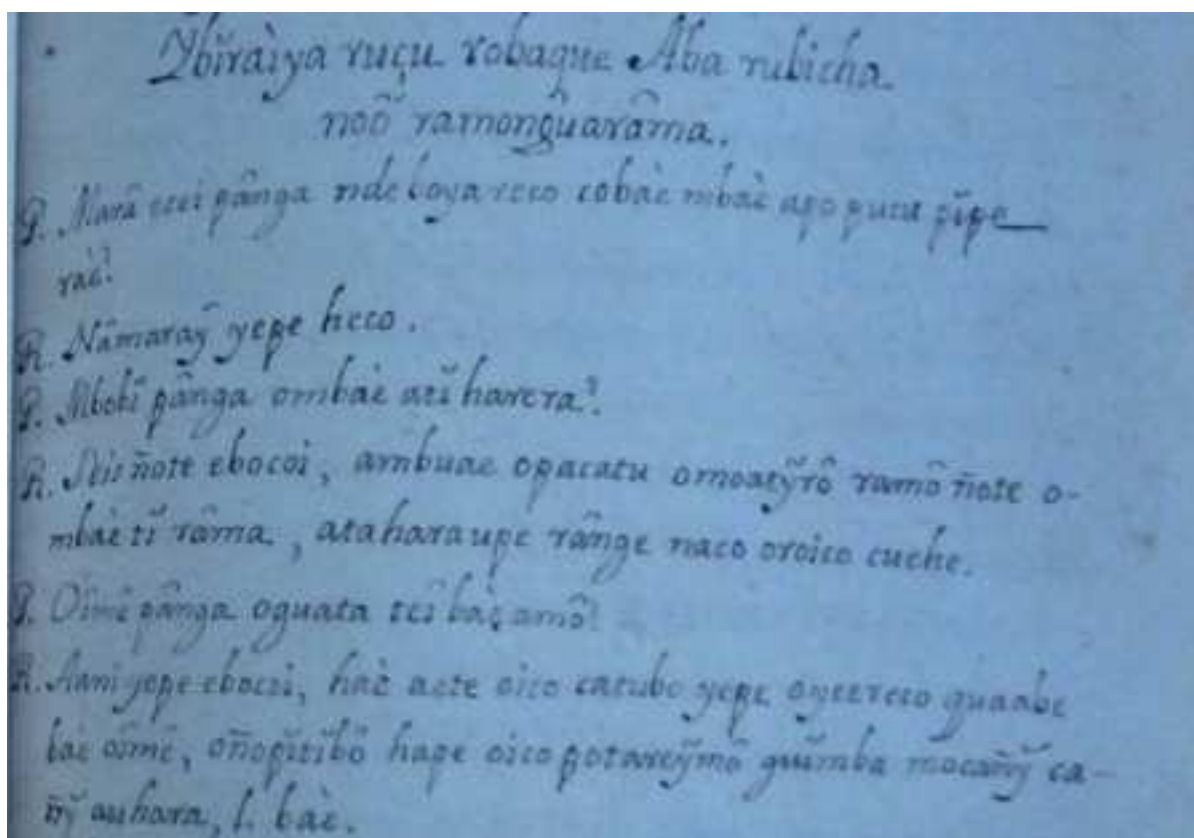 Ybĭraìya ruçu robaque Aba rubicha
noô ramonĝuarâma.
P. Marâ ecei pânga nde boya reco cobaè mbaè apo pucu pĭpe
raé?
R. Nâmaraỹ yepe heco.
P. Mbobĭ pânga ombaè atĭ harera?
R. Seis ñote ebocoi, ambuae opacatu omoatỹrô ramô ñote o-
mbaè tĭ râma, ataharaupe rânge naco oroico cuehe.
P. Oĭmê pânga oguata teĭ baè amô?
R. Aani yepe ebocoi, haè aete oico catubo yepe oyeereco guaabe
bae oĭmê, oñopĭtĭbô hape oico potareỹmô guĭmba mocañỹ ca-
ñỹ auhara, l. baè.